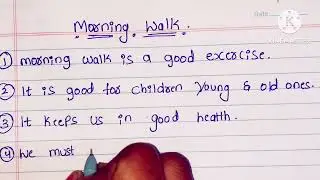 Morning Walk.
① morning walk is a good excercise.
② It is good for children young & old ones.
③ It keeps us in good health.
④ we must